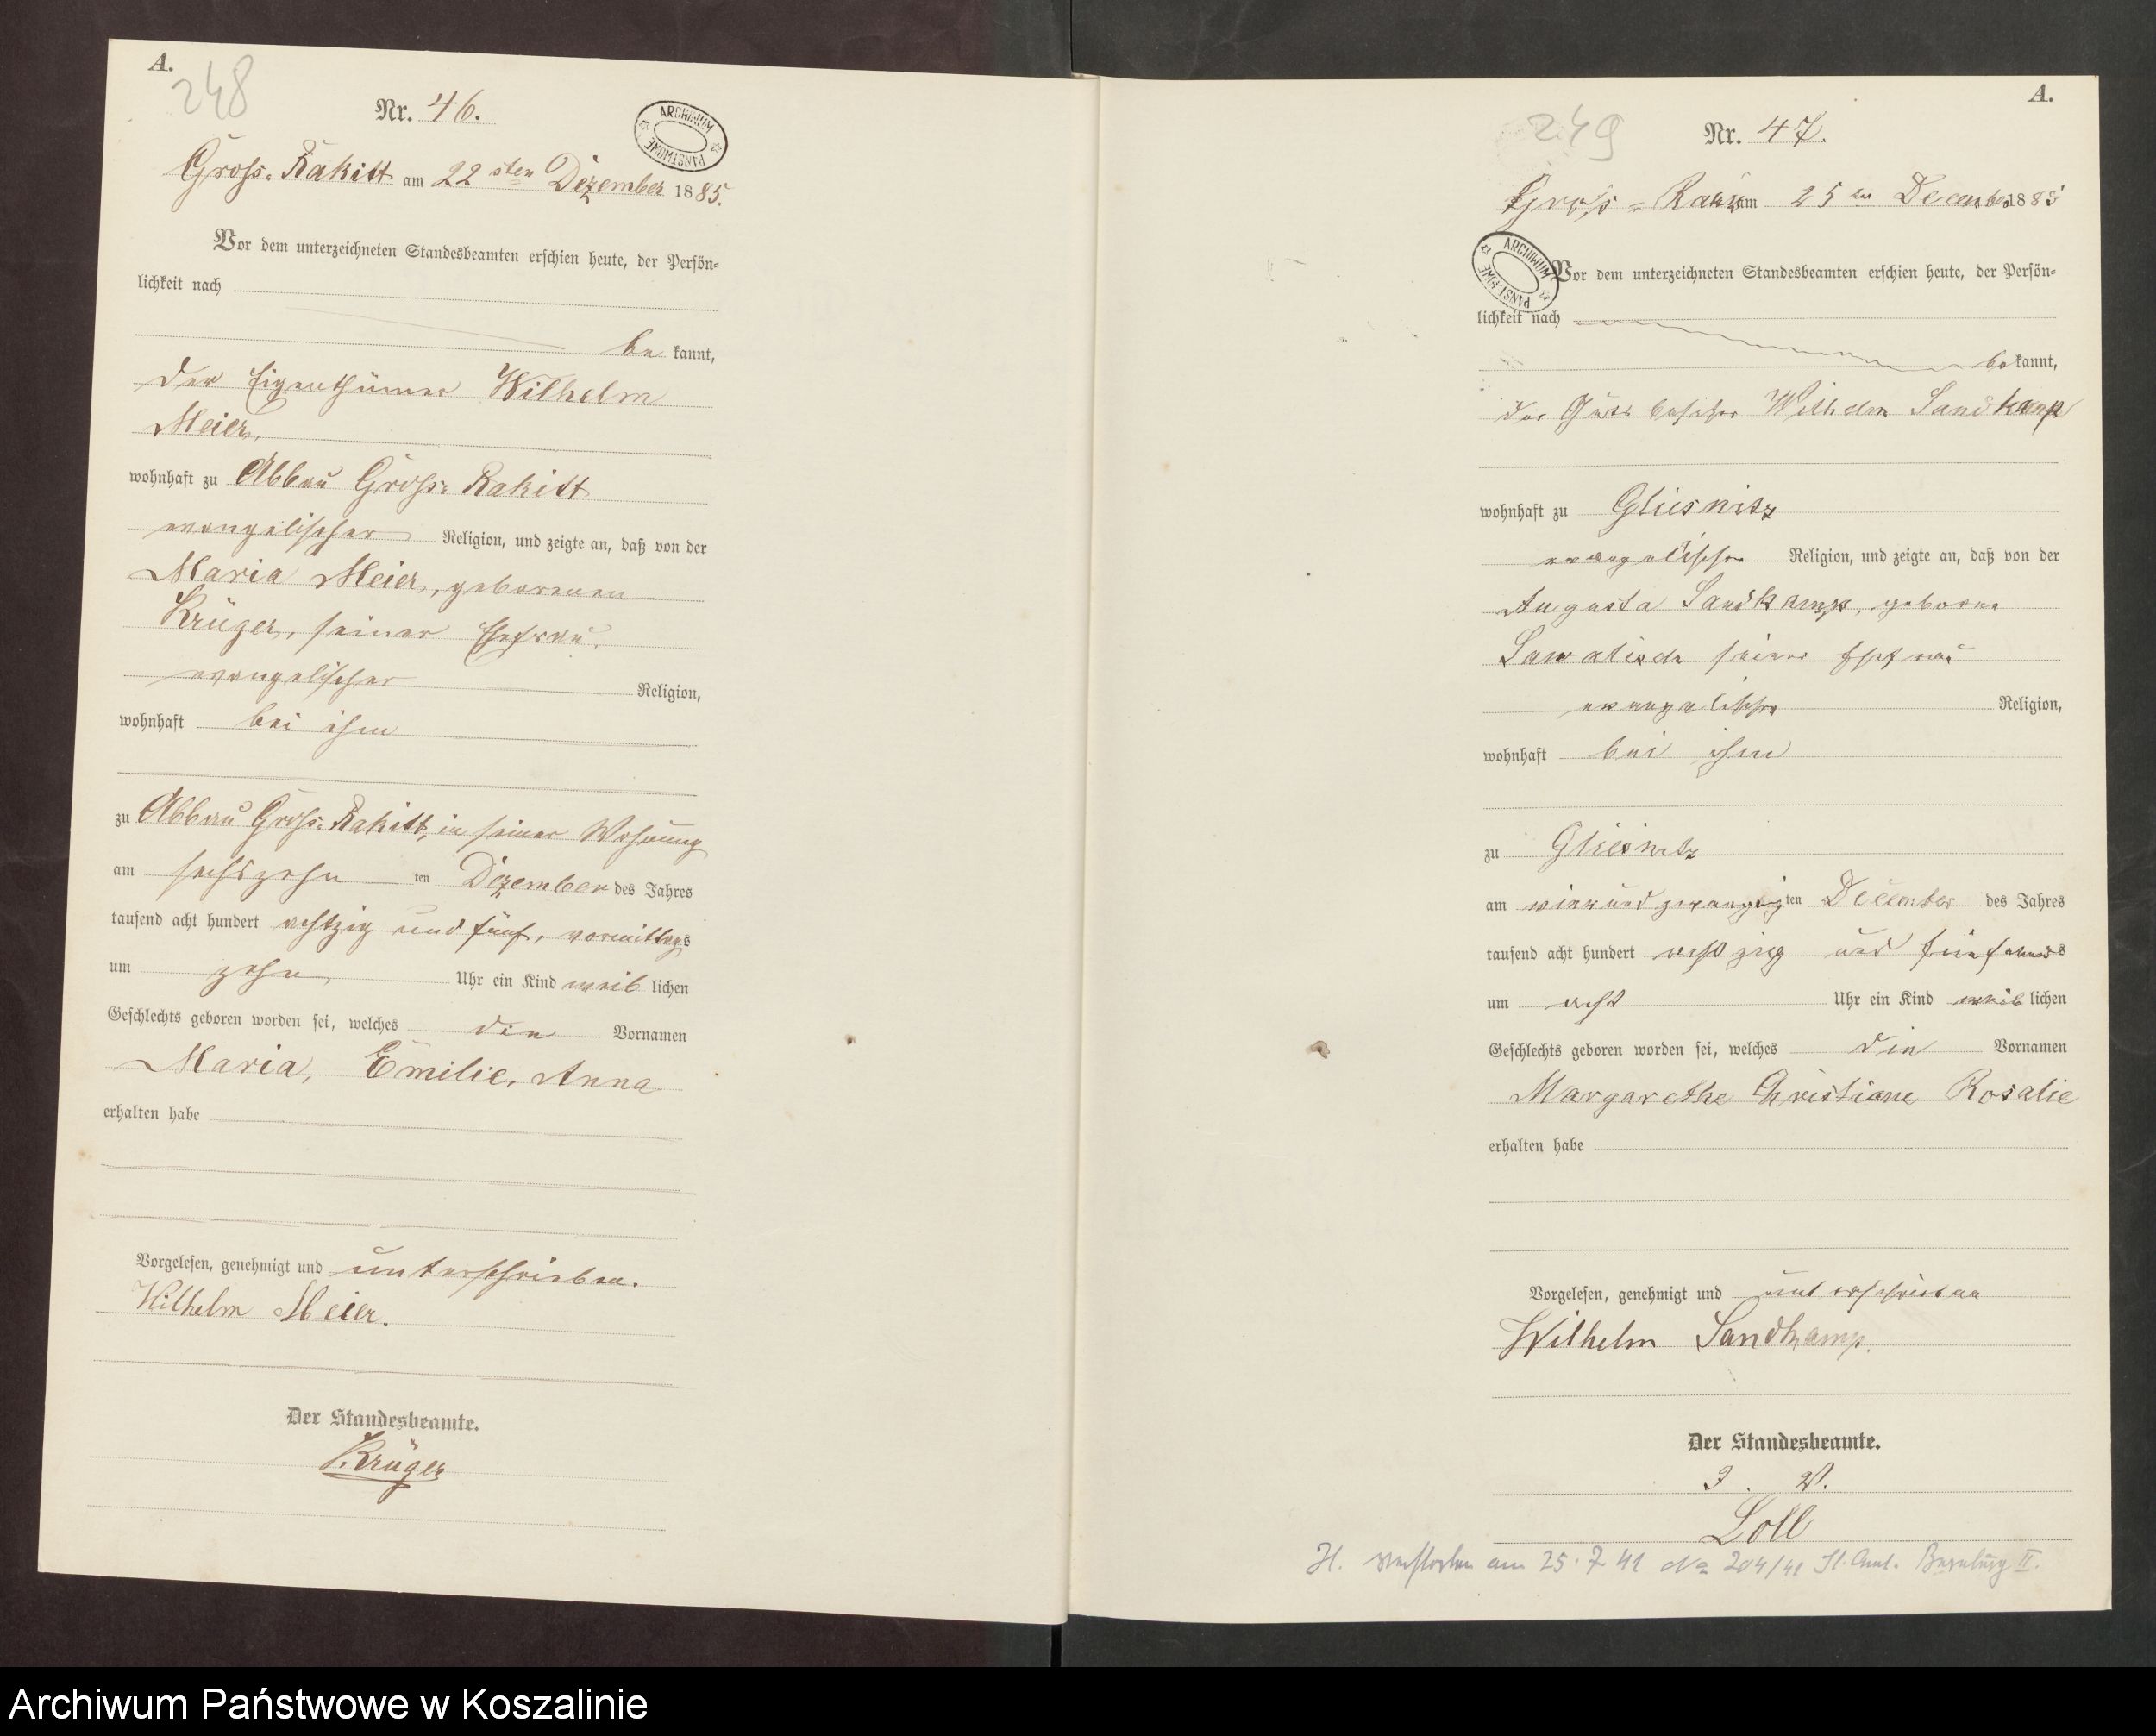 A.
248
Nr. 46.
ARCHIWUM PAŃSTWOWE
Gross-Rakitt am 22sten Dezember 1885.
Vor dem unterzeichneten Standesbeamten erschien heute, der Persön-
lichkeit nach
be kannt,
der Eigenthümer Wilhelm
Meier,
wohnhaft zu Abbau Gross-Rakitt
evangelischer Religion, und zeigte an, daß von der
Maria Meier, geborenen
Krüger, seiner Ehefrau,
evangelischer Religion,
wohnhaft bei ihm
zu Abbau Gross-Rakitt, in seiner Wohnung
am sechszehn ten Dezember des Jahres
tausend acht hundert achtzig und fünf, vormittags
um zehn Uhr ein Kind weib lichen
Geschlechts geboren worden sei, welches die Vornamen
Maria, Emilie, Anna
erhalten habe
Vorgelesen, genehmigt und unterschrieben.
Wilhelm Meier.
Der Standesbeamte.
Krüger
A.
249
Nr. 47.
Gross-am 25ten December 1885
ARCHIWUM PAŃSTWOWE
Vor dem unterzeichneten Standesbeamten erschien heute, der Persön-
lichkeit nach
be kannt,
der Gutsbesitzer Wilhelm Sandkamp
wohnhaft zu Gliesnitz
evangelischer Religion, und zeigte an, daß von der
Augusta Sandkamp, geborne
seiner Ehefrau
evangelischer Religion,
wohnhaft bei ihm
zu Gliesnitz
am vierundzwanzig ten December des Jahres
tausend acht hundert achtzig und fünf abends
um acht Uhr ein Kind weib lichen
Geschlechts geboren worden sei, welches die Vornamen
Margarethe Christiane Rosalie
erhalten habe
Vorgelesen, genehmigt und unterschrieben
Wilhelm Sandkamp.
Der Standesbeamte.
J. V.
Loll
H. verstorben am 25.7.41 No 204/41 St. Amt. Bernburg II.
Archiwum Państwowe w Koszalinie